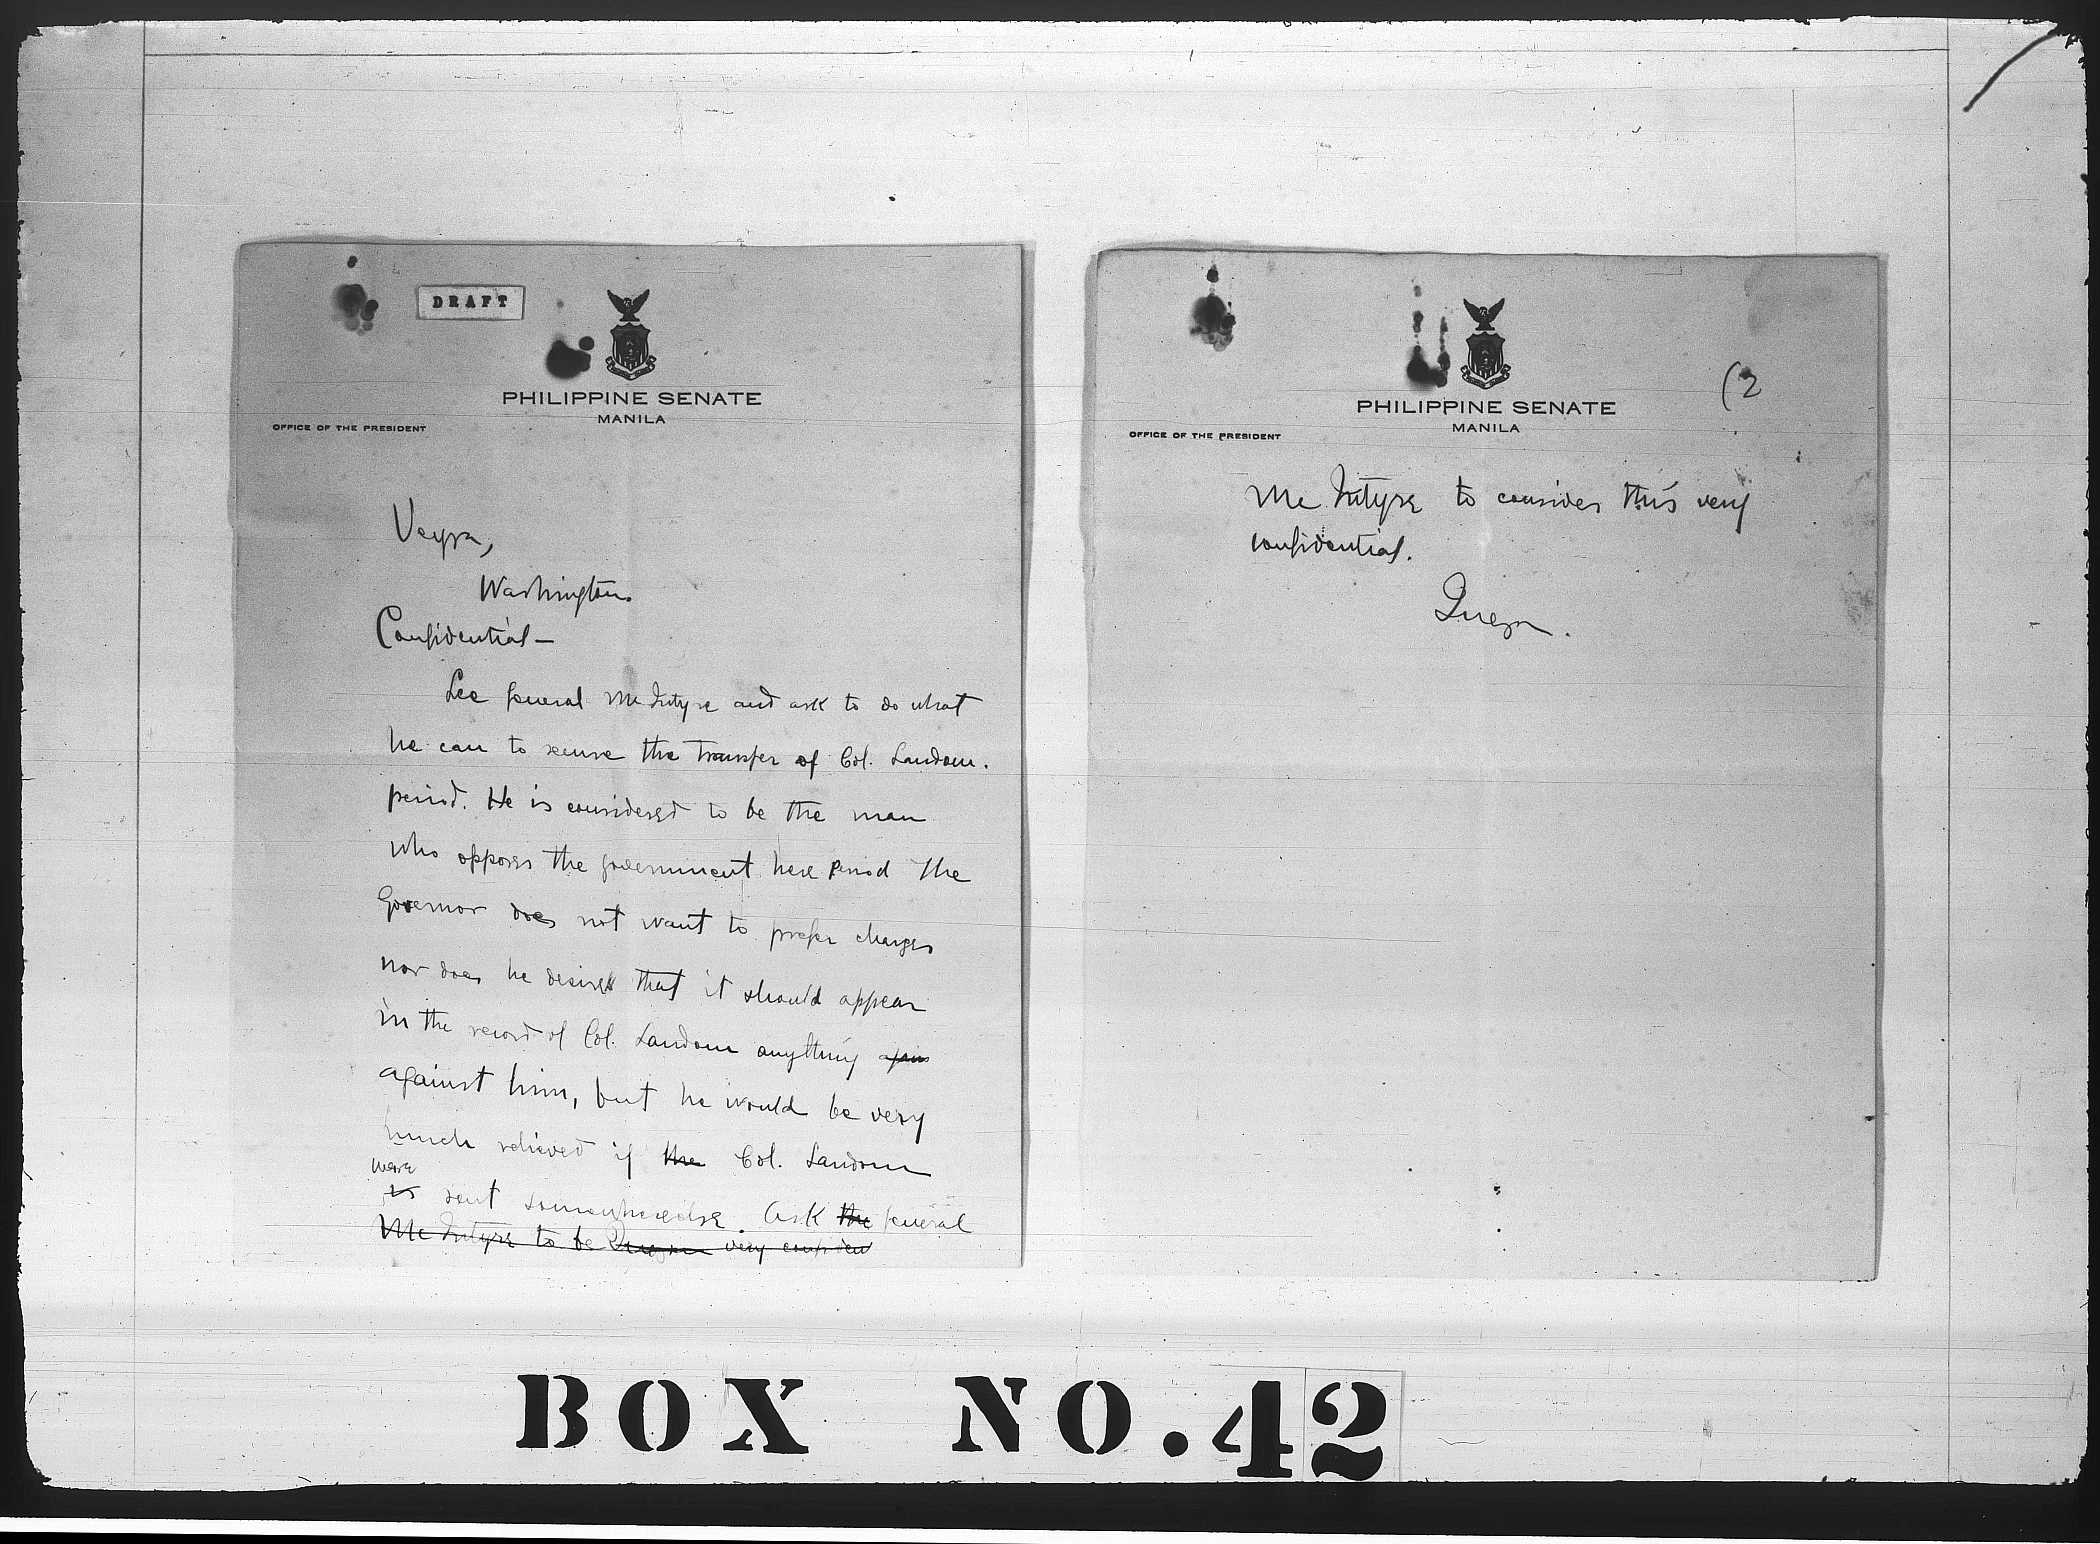 DRAFT
PHILIPPINE SENATE
MANILA
OFFICE OF THE PRESIDENT
Veyra,
Washington.
Confidential—
See General McIntyre and ask to do what
he can to secure the transfer of Col. Landon.
period. He is considered to be the man
who opposes the government here period The
Governor does not want to prefer charges
nor does he desire that it should appear
in the record of Col. Landon anything
against him, but he would be very
much relieved if the Col. Landon
were
is sent somewhere else. Ask the General
McIntyre to be very confiden
PHILIPPINE SENATE
MANILA
OFFICE OF THE PRESIDENT
(2
McIntyre to consider this very
confidential.
Quezon.
BOX NO.42